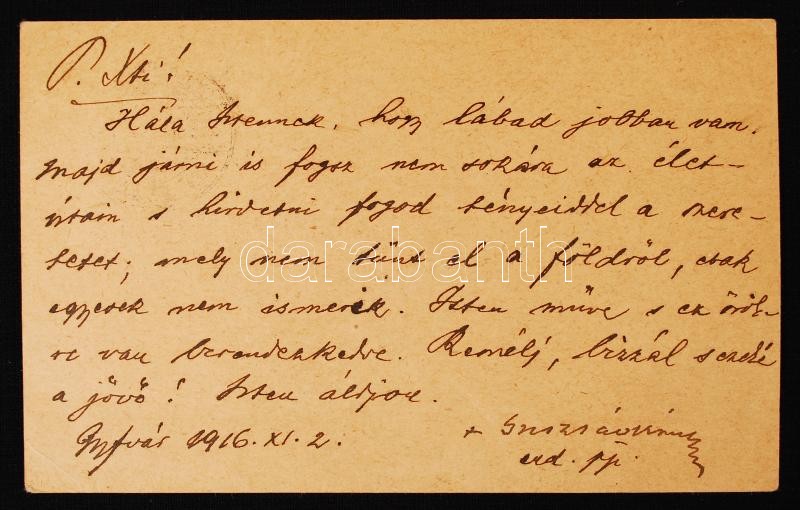 P. Xti!
Hála Istennek, hogy lábad jobban van,
majd járni is fogsz nem sokára az élet-
útain s hirdetni fogod tényeiddel a szere-
tetet; mely nem tünt el a földről, csak
egyesek nem ismerik. Isten műve s ez örök-
re van berendezkedve. Remélj, bizzál s
a jövő! Isten áldjon.
Gyfvár 1916. XI. 2.
erd. pp.
darabanth